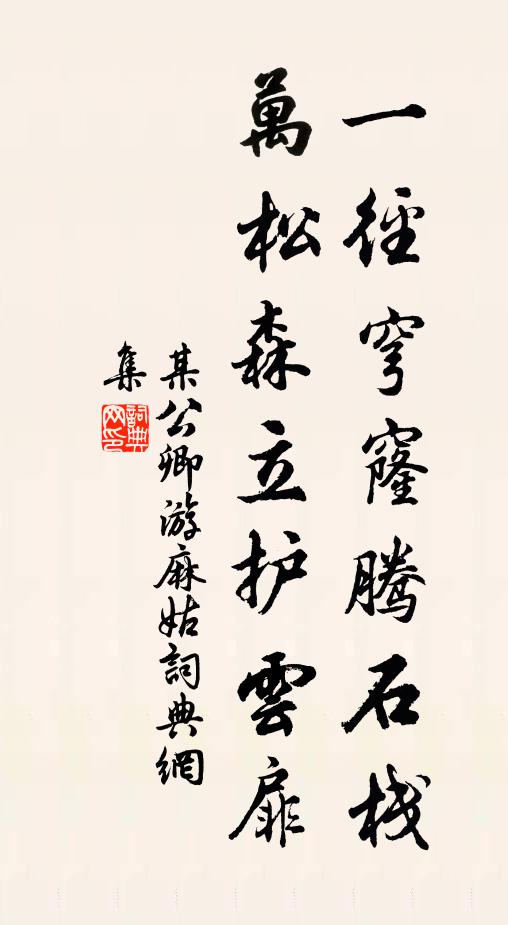 一径穹窿腾石栈
萬松森立护雲扉
某公卿游麻姑詞典網
集
詞典
网印